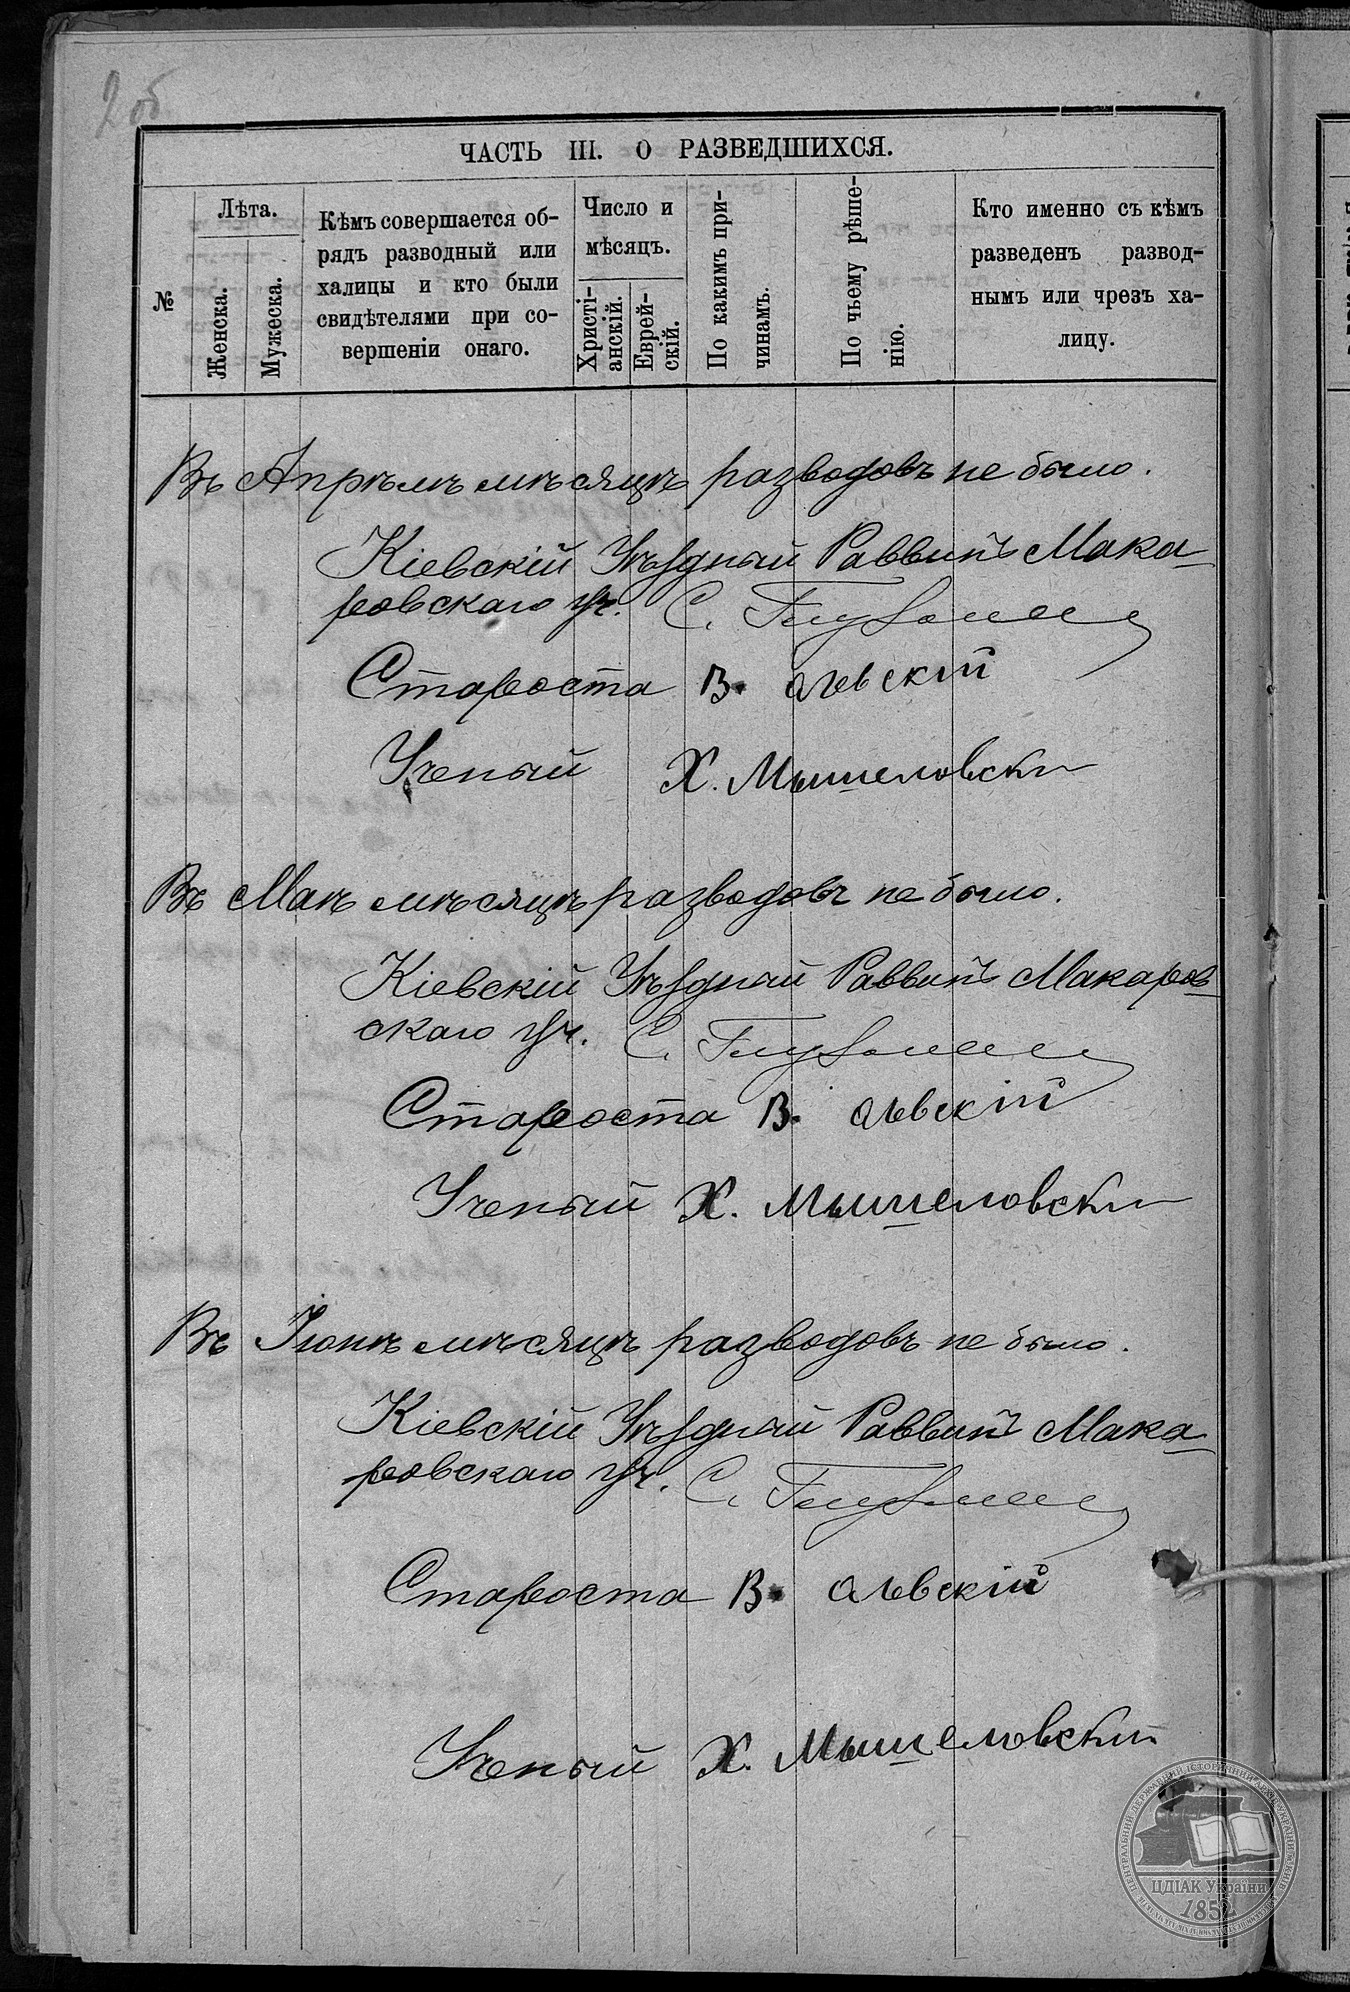 2об
ЧАСТЬ III. О РАЗВЕДШИХСЯ.
№
Лѣта.
Женска.
Мужеска.
Кѣмъ совершается об-
рядъ разводный или
халицы и кто были
свидѣтелями при со-
вершеніи онаго.
Число и
мѣсяцъ.
Христі-
анскій.
Еврей-
скій.
По какимъ при-
чинамъ.
По чьему рѣше-
нію.
Кто именно съ кѣмъ
разведенъ развод-
нымъ или чрезъ ха-
лицу.
Въ Апрѣлѣ мѣсяцѣ разводовъ не было.
Кіевскій Уѣздный Раввинъ Мака-
ровскаго уч. С.
Староста В.
Ученый Х. Мышеловски
Въ Маѣ мѣсяцѣ разводовъ не было.
Кіевскій Уѣздный Раввинъ Макаров-
скаго уч. С.
Староста В.
Ученый Х. Мышеловски
Въ Іюнѣ мѣсяцѣ разводовъ не было.
Кіевскій Уѣздный Раввинъ Мака-
ровскаго уч. С.
Староста В.
Ученый Х. Мышеловски
ЦЕНТРАЛЬНИЙ ДЕРЖАВНИЙ ІСТОРИЧНИЙ АРХІВ УКРАЇНИ
ЦДІАК України
1852